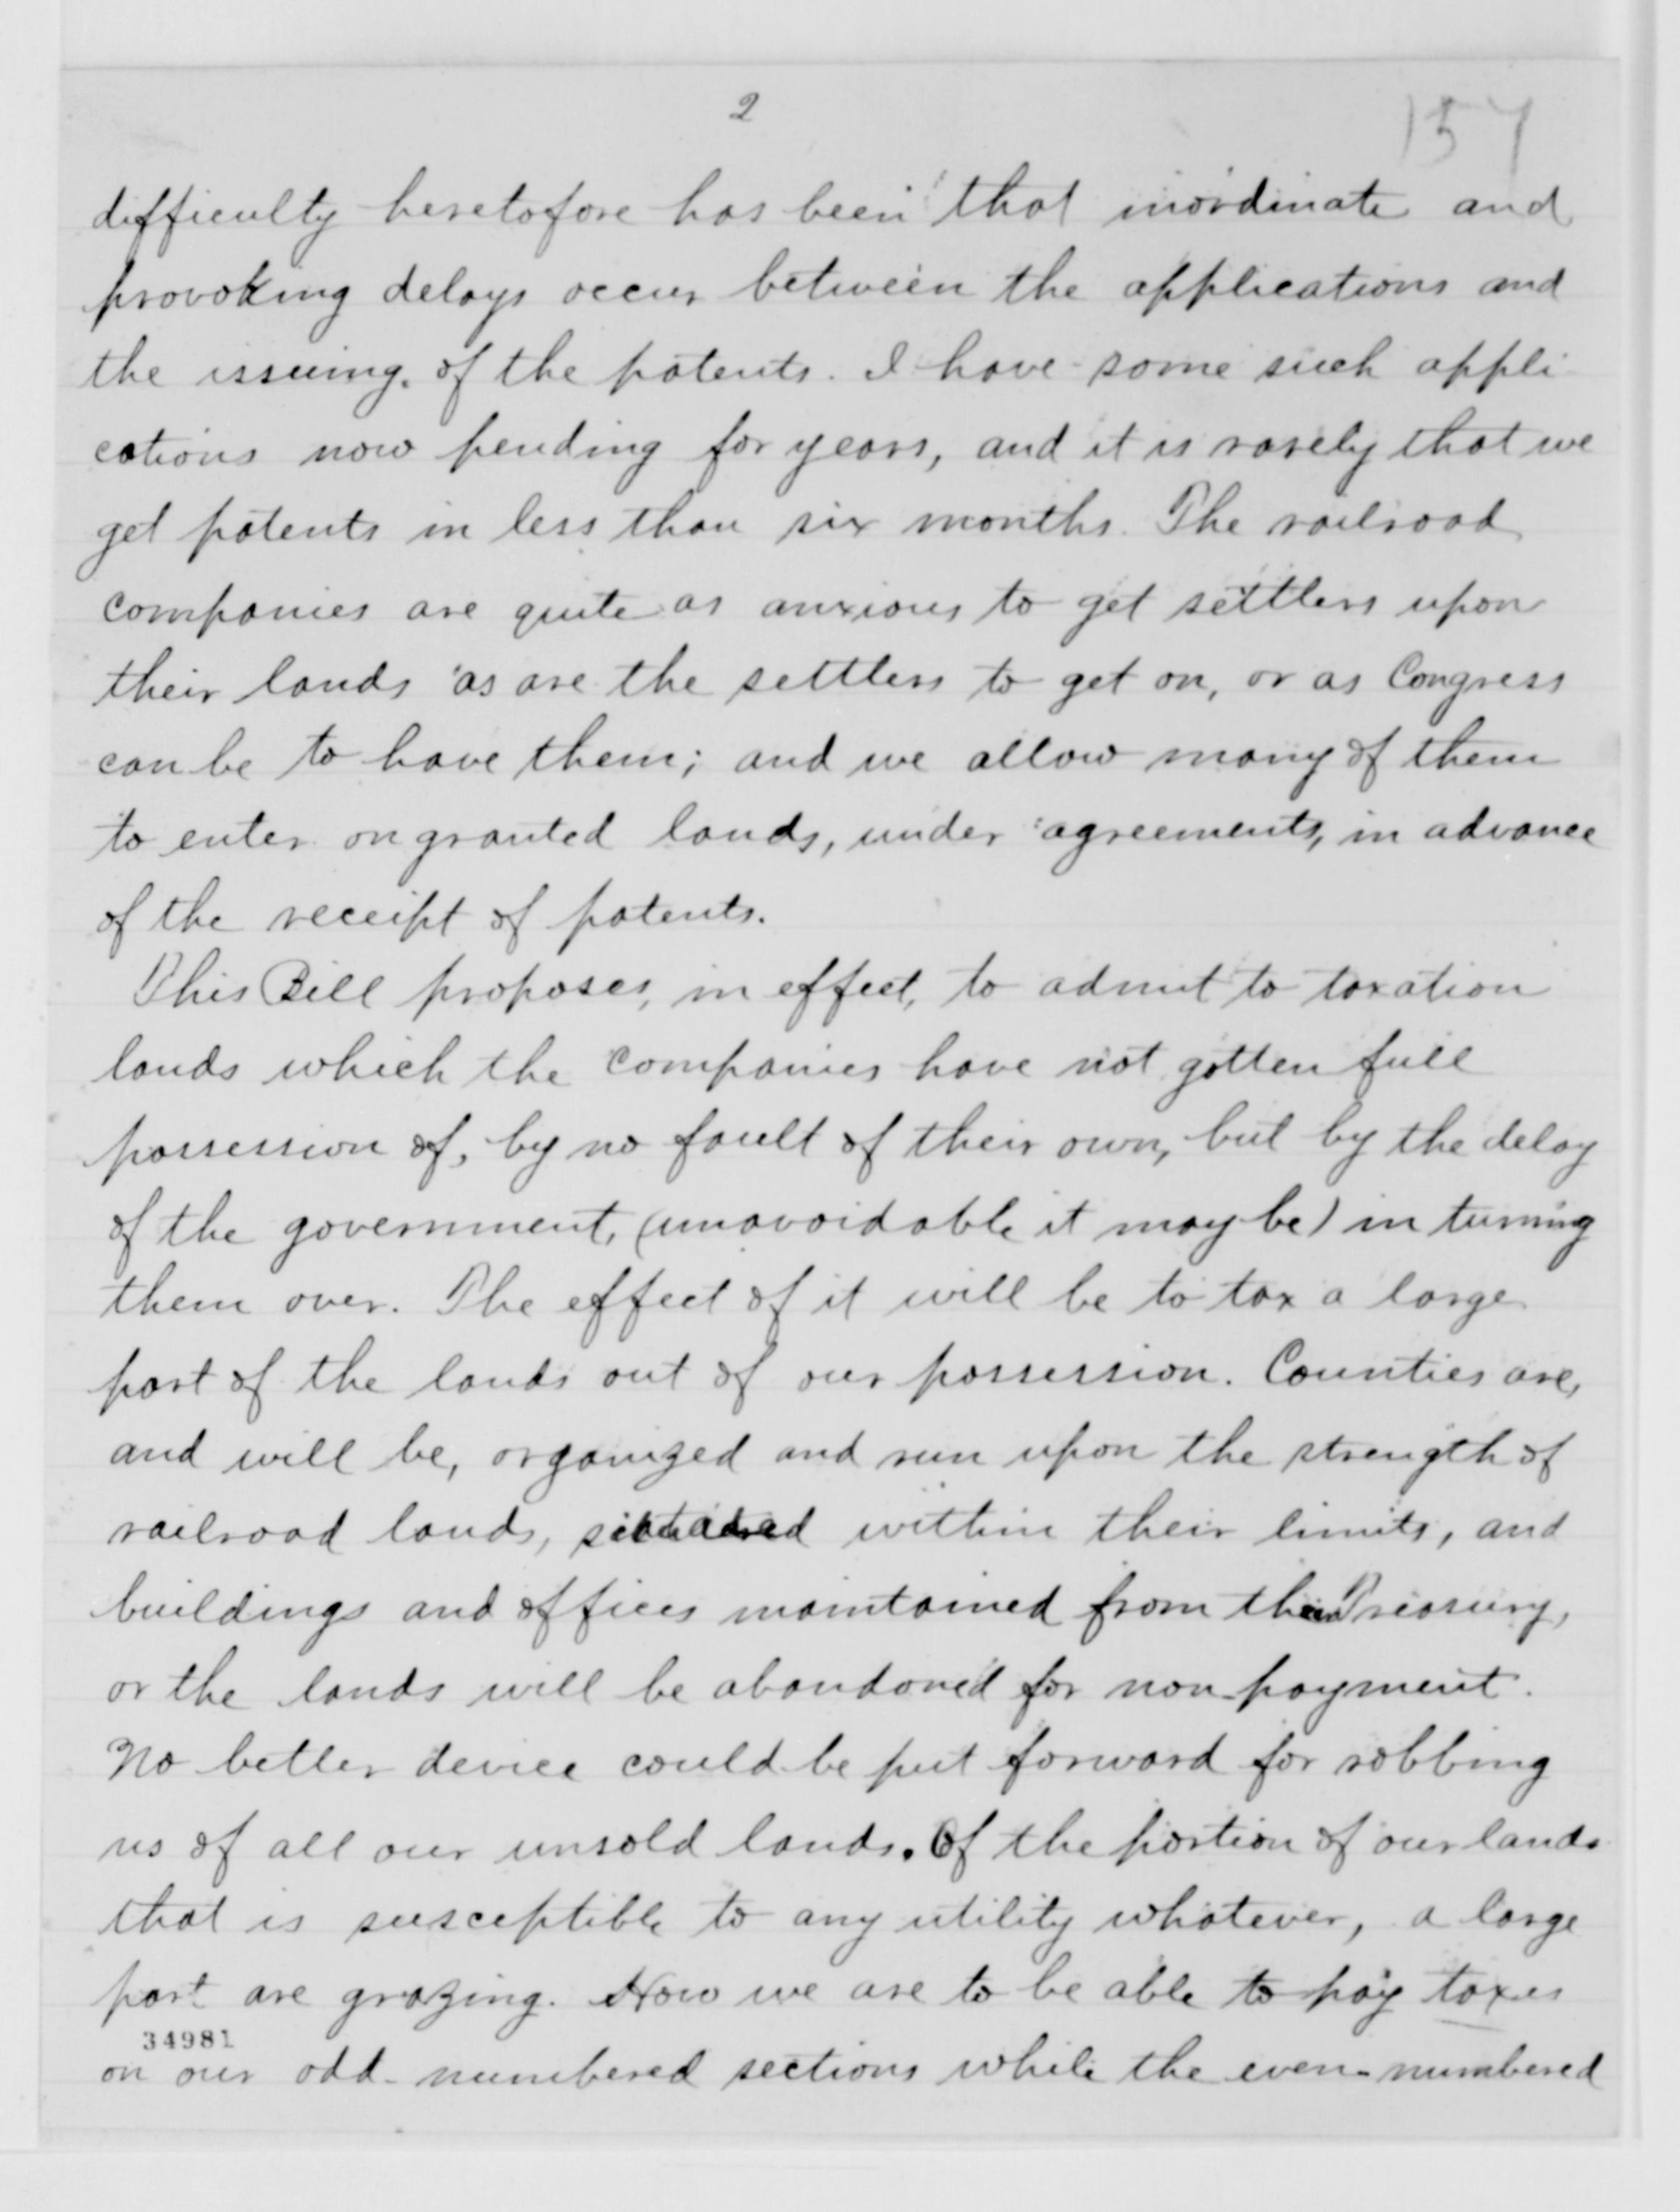 2
157
difficulty heretofore has been that inordinate and
provoking delays occur between the applications and
the issuing, of the patents. I have some such appli-
cations now pending for years, and it is rarely that we
get patents in less than six months. The railroad
companies are quite as anxious to get settlers upon
their lands as are the settlers to get on, or as Congress
can be to have them; and we allow many of them
to enter on granted lands, under agreements, in advance
of the receipt of patents.
This Bill proposes, in effect, to admit to taxation
lands which the companies have not gotten full
possession of, by no fault of their own, but by the delay
of the government, (unavoidable it may be) in turning
them over. The effect of it will be to tax a large
part of the lands out of our possession. Counties are,
and will be, organized and run upon the strength of
railroad lands, situated within their limits, and
buildings and offices maintained from their Treasury,
or the lands will be abandoned for non-payment.
No better device could be put forward for robbing
us of all our unsold lands. Of the portion of our lands
that is susceptible to any utility whatever, a large
part are grazing. How we are to be able to pay taxes
34981
on our odd-numbered sections while the even-numbered